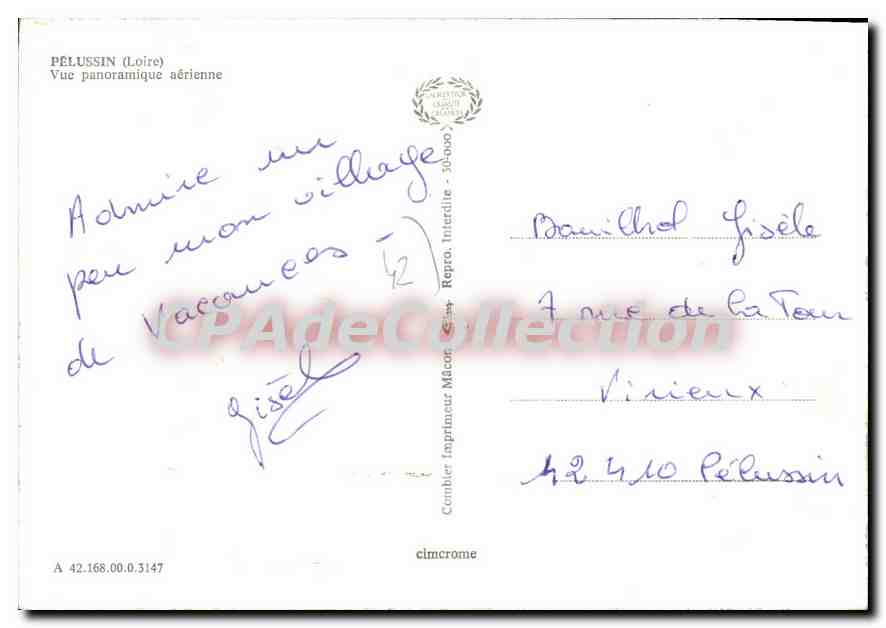 PÉLUSSIN (Loire)
Vue panoramique aérienne
Admire un
peu mon village
de vacances -
Gisèle
42
Combier Imprimeur Mâcon Repro. Interdite - 50-000
Gisèle
7 rue de la Tour
Virieux
42 410 Pélussin
CPAdeCollection
cimcrome
A 42.168.00.0.3147